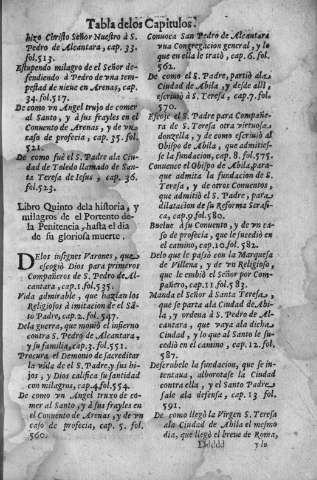 Tabla delos Capitulos.
hizo Christo Señor Nuestro à S.
Pedro de Alcantara, cap. 33.
fol. 513.
Estupendo milagro de el Señor defendiendo
à Pedro de vna tempestad
de nieue en Arenas, cap.
34. fol. 517.
De como vn Angel truxo de comer
al Santo, y à sus frayles en el
Conuento de Arenas, y de vn
caso de profecia, cap. 35. fol.
521.
De como fuè el S. Padre ala Ciudad
de Toledo llamado de Santa
Teresa de Iesus, cap. 36.
fol. 523.
Libro Quinto dela historia, y
milagros de el Portento de
la Penitencia, hasta el dia
de su gloriosa muerte.
DElos insignes Varones, que
escogiò Dios para primeros
Compañeros de S. Pedro de Alcantara,
cap. 1. fol. 535.
Vida admirable, que hazian los
Religiosos à imitacion de el Santo
Padre, cap. 2. fol. 547.
Dela guerra, que mouiò el infierno
contra S. Pedro de Alcantara,
y su familia, cap. 3. fol. 551.
Procura el Demonio desacreditar
la vida de el S. Padre, y sus hijos,
y Dios califica su santidad
con milagros, cap. 4. fol. 554.
De como vn Angel truxo de comer
al Santo, y à sus frayles en
el Conuento de Arenas, y de vn
caso de profecia, cap. 5. fol.
560.
Conuoca San Pedro de Alcantara
vna Congregacion general, y lo
que en ella se tratò, cap. 6. fol.
562.
De como el S. Padre, partiò ala
Ciudad de Abila, y desde alli,
escriuiò à S. Teresa, cap. 7. fol.
570.
Escoje el S. Padre para Compañera
de S. Teresa otra virtuosa
donzella, y de como escriuiò al
Obispo de Abila, que admitiesse
la fundacion, cap. 8. fol. 575.
Conuence el Obispo de Abila, para
que admita la fundacion de S.
Teresa, y de otros Conuentos,
que admitiò el S. Padre, para
dilatacion de su Reforma Serafica,
cap. 9. fol. 580.
Buelue à su Conuento, y de vn caso
de profecia, que le sucediò en
el camino, cap. 10. fol. 582.
Delo que le passò con la Marquesa
de Villena, y de vn Religioso,
que le embiò el Señor por Compañero,
cap. 11. fol. 583.
Manda el Señor à Santa Teresa,
que se parta ala Ciudad de Abila,
y ordena à S. Pedro de Alcantara,
que vaya ala dicha
Ciudad, y lo que al Santo le sucediò
en el camino, cap. 12. fol.
587.
Descubrese la fundacion, que se intentaua,
alborotase la Ciudad
contra ella, y el Santo Padre
sale ala defensa, cap. 13. fol.
591.
De como llegò la Virgen S. Teresa
ala Ciudad de Abila el mesmo
dia, que llegò el breue de Roma,
Dddddd y lo